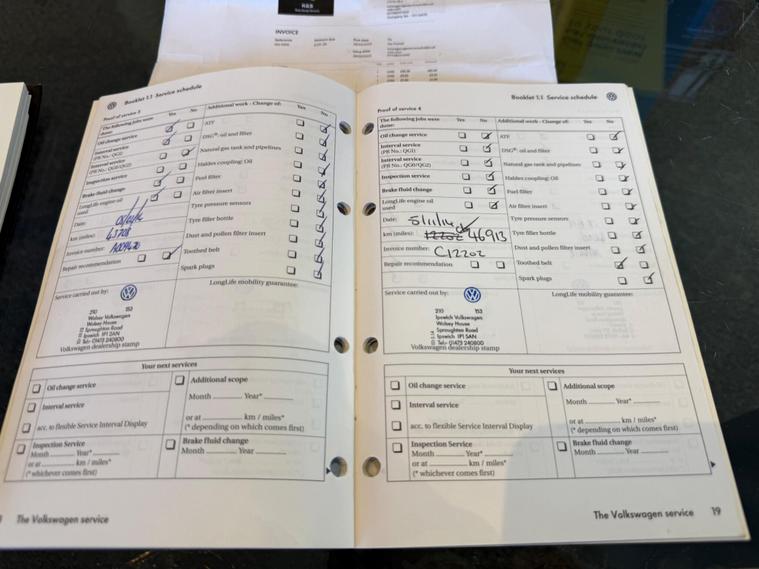 INVOICE
Booklet 1.1 Service schedule
Proof of service 3
The following jobs were done: Yes No
Oil change service
Interval service (PR No.: QG1)
Interval service (PR No.: QG0/QG2)
Inspection service
Brake fluid change
LongLife engine oil used
Date:
km (miles): 43708
Invoice number:
Repair recommendation
Additional work - Change of: Yes No
ATF
DSG®: oil and filter
Natural gas tank and pipelines
Haldex coupling: Oil
Fuel filter
Air filter insert
Tyre pressure sensors
Tyre filler bottle
Dust and pollen filter insert
Toothed belt
Spark plugs
Service carried out by:
LongLife mobility guarantee:
210 153
Wolsey Volkswagen
Wolsey House
Sproughton Road
Ipswich IP1 5AN
Tel: 01473 240800
Volkswagen dealership stamp
Your next services
Oil change service
Interval service
acc. to flexible Service Interval Display
Inspection Service
Month Year*
or at km / miles*
(* whichever comes first)
Additional scope
Month Year*
or at km / miles*
(* depending on which comes first)
Brake fluid change
Month Year
The Volkswagen service
Booklet 1.1 Service schedule
Proof of service 4
The following jobs were done: Yes No
Oil change service
Interval service (PR No.: QG1)
Interval service (PR No.: QG0/QG2)
Inspection service
Brake fluid change
LongLife engine oil used
Date: 5/11/14
km (miles): 12202 46913
Invoice number: C12202
Repair recommendation
Additional work - Change of: Yes No
ATF
DSG®: oil and filter
Natural gas tank and pipelines
Haldex coupling: Oil
Fuel filter
Air filter insert
Tyre pressure sensors
Tyre filler bottle
Dust and pollen filter insert
Toothed belt
Spark plugs
Service carried out by:
LongLife mobility guarantee:
210 153
Ipswich Volkswagen
Wolsey House
Sproughton Road
Ipswich IP1 5AN
Tel: 01473 240800
Volkswagen dealership stamp
Your next services
Oil change service
Interval service
acc. to flexible Service Interval Display
Inspection Service
Month Year*
or at km / miles*
(* whichever comes first)
Additional scope
Month Year*
or at km / miles*
(* depending on which comes first)
Brake fluid change
Month Year
The Volkswagen service 19